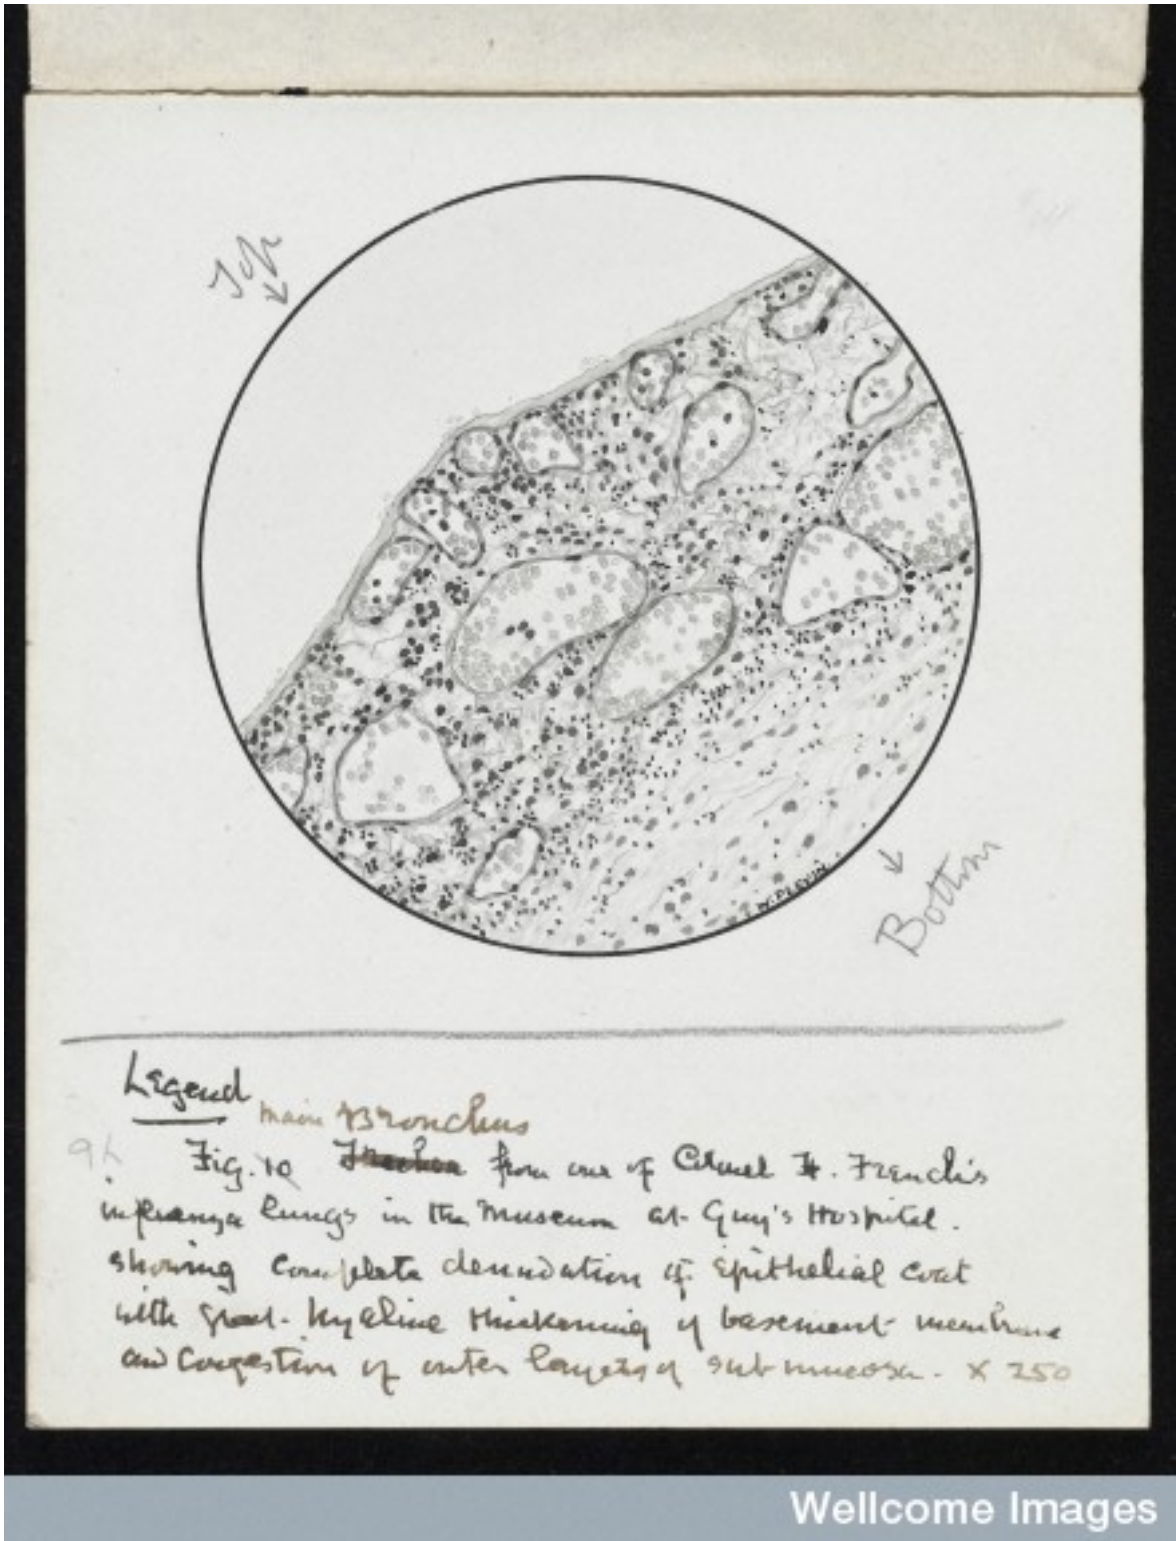 Top
W. PLEVIN.
Bottom
Legend
Main Bronchus
Fig. 10 Trachea from one of Colonel H. French's
influenza lungs in the Museum at Guy's Hospital.
showing complete denudation of epithelial coat
with great hyaline thickening of basement membrane
and congestion of outer layers of submucosa. × 250
Wellcome Images